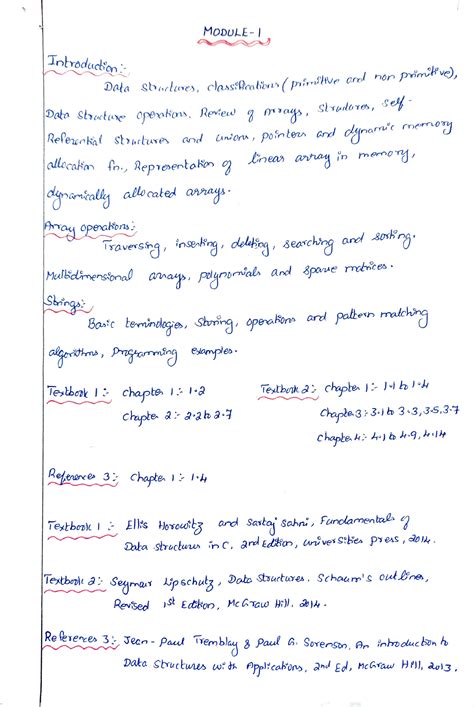 MODULE-1
Introduction:-
Data structures, classifications (primitive and non primitive),
Data structure operations. Review of Arrays, structures, self-
Referential structures and unions, pointers and dynamic memory
allocation fn., Representation of linear array in memory,
dynamically allocated arrays.
Array operations:-
Traversing, inserting, deleting, searching and sorting.
Multidimensional arrays, polynomials and sparse matrices.
Strings:-
Basic terminologies, Storing, operations and pattern matching
algorithms, Programming examples.
Textbook 1:- chapter 1:- 1.2
Chapter 2:- 2.2 to 2.7
Textbook 2:- chapter 1:- 1.1 to 1.4
Chapter 3:- 3.1 to 3.3, 3.5, 3.7
Chapter 4:- 4.1 to 4.9, 4.14
References 3:- Chapter 1:- 1.4
Textbook 1:- Ellis Horowitz and Sartaj Sahni, Fundamentals of
Data structures in C, 2nd Edition, universities press, 2014.
Textbook 2:- Seymour Lipschutz, Data structures. Schaum's outlines,
Revised 1st Edition, McGraw Hill. 2014.
References 3:- Jean-Paul Tremblay & Paul G. Sorenson, An introduction to
Data Structures with Applications, 2nd Ed, McGraw Hill, 2013.